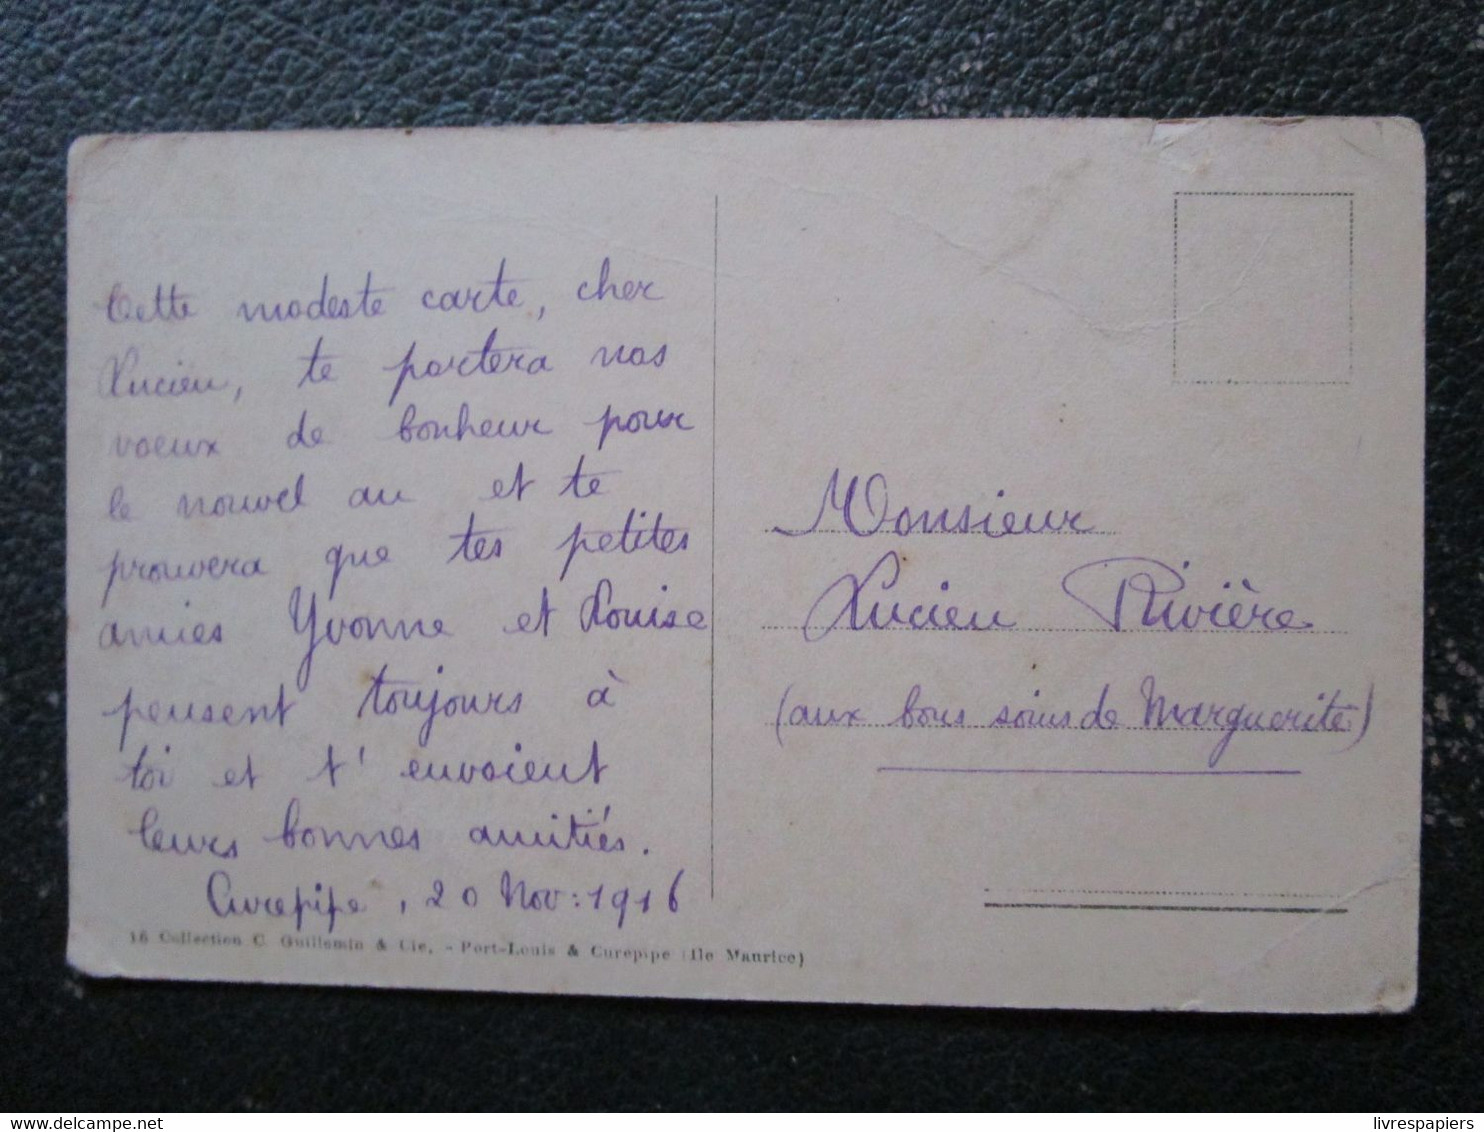 Cette modeste carte, cher
Lucien, te portera nos
voeux de bonheur pour
le nouvel an et te
prouvera que tes petites
amies Yvonne et Louise
pensent toujours à
toi et t'envoient
leurs bonnes amitiés.
Curepipe, 20 Nov: 1916
16 Collection C. Guillemin & Cie. - Port-Louis & Curepipe (Ile Maurice)
Monsieur
Lucien Rivière
(aux bons soins de Marguerite)
delcampe.net
livrespapiers